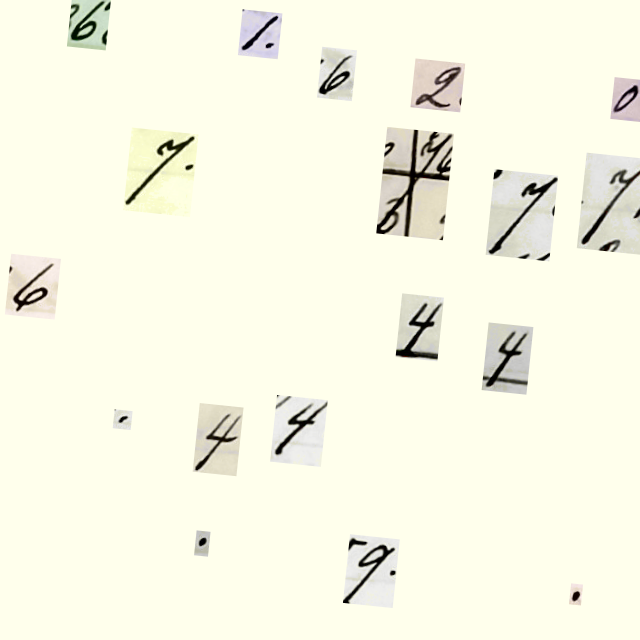 6 1.
6 2 0
7. 7 7 7
6
4 4
4 4
9.